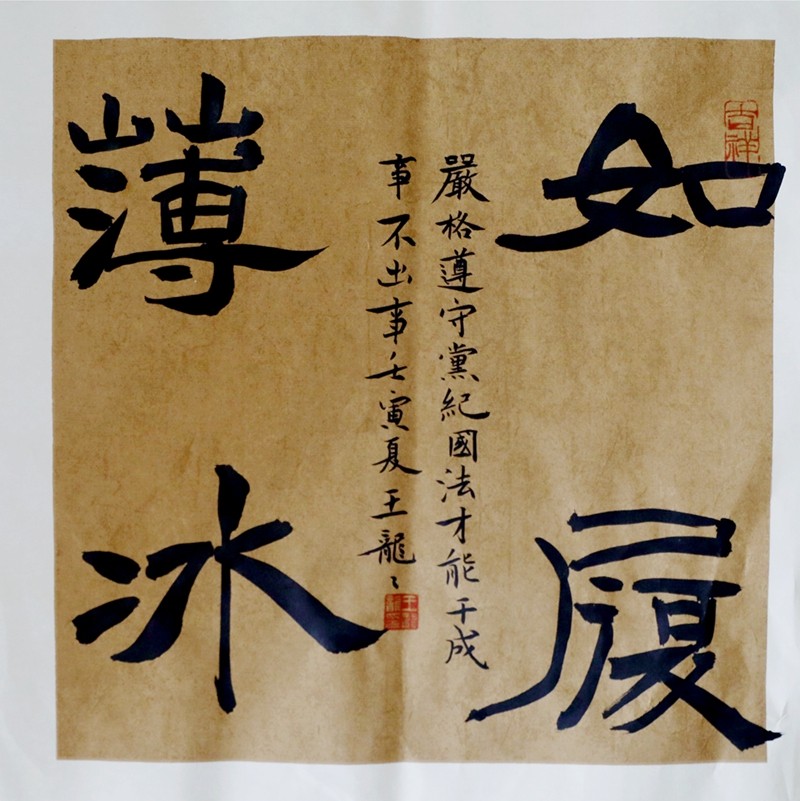 如履
薄冰
嚴格遵守黨紀國法才能干成
事不出事壬寅夏王龍